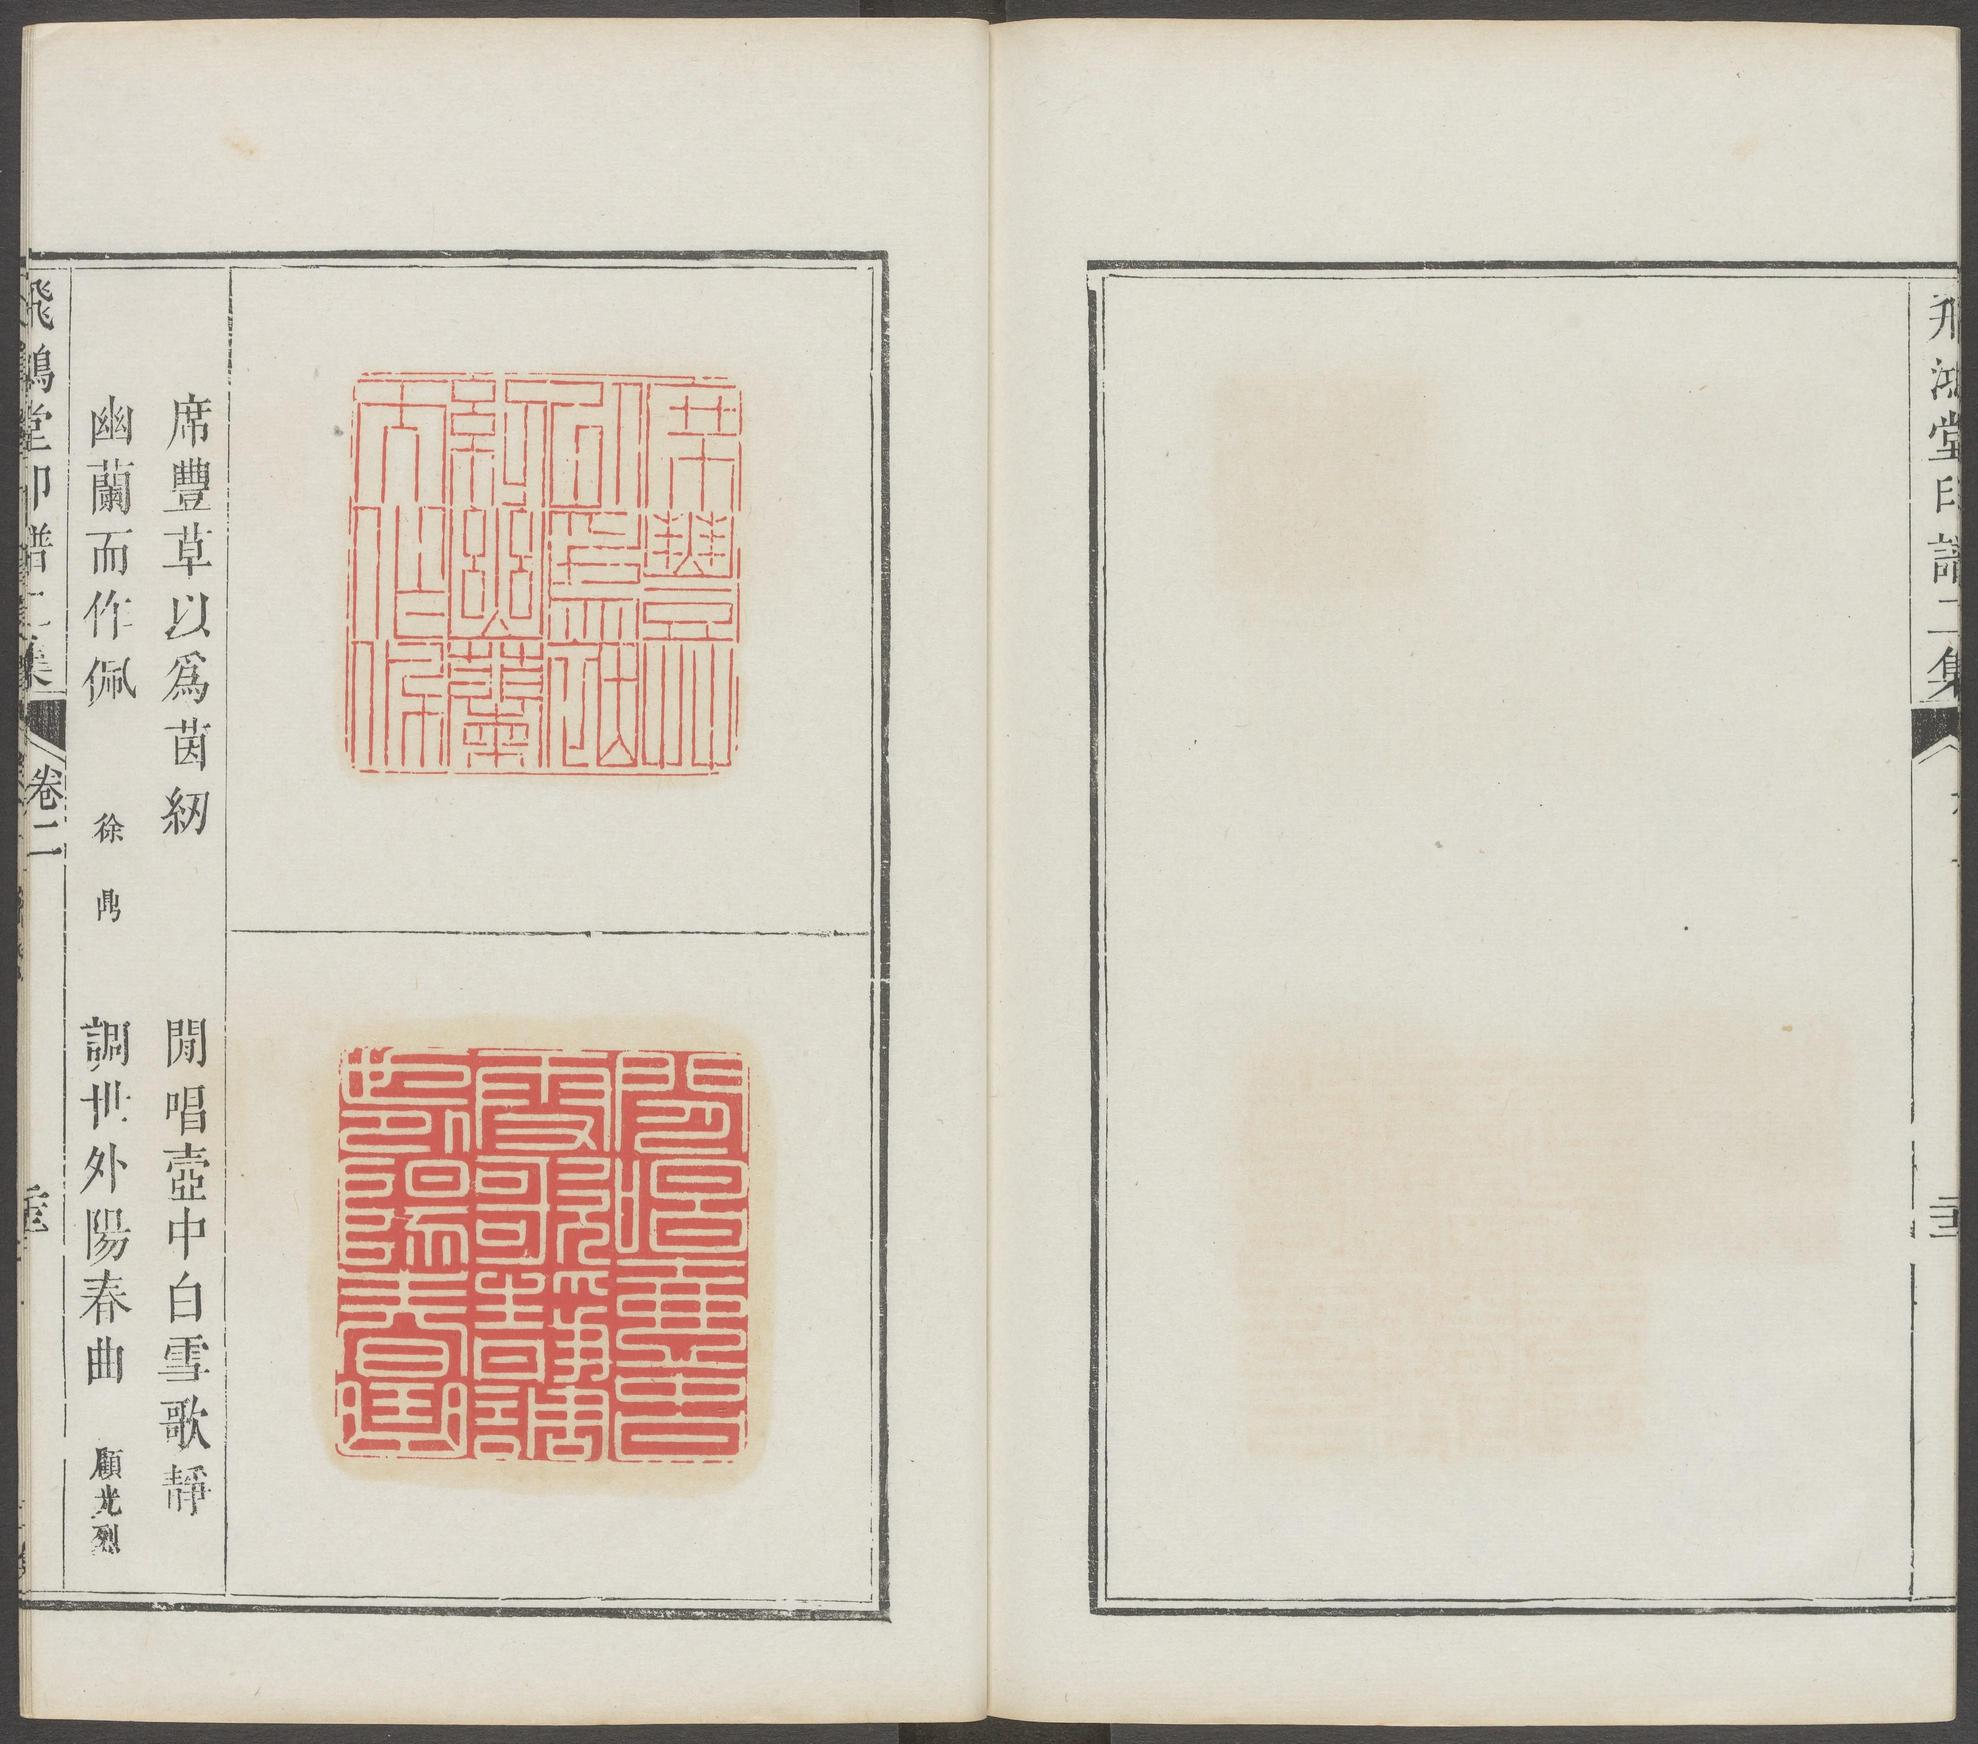 飛鴻堂印譜二集
席豐草以爲茵紉
幽蘭而作佩
徐鼎
閒唱壺中白雪歌靜
調世外陽春曲
顧光烈
飛鴻堂印譜二集
卷二